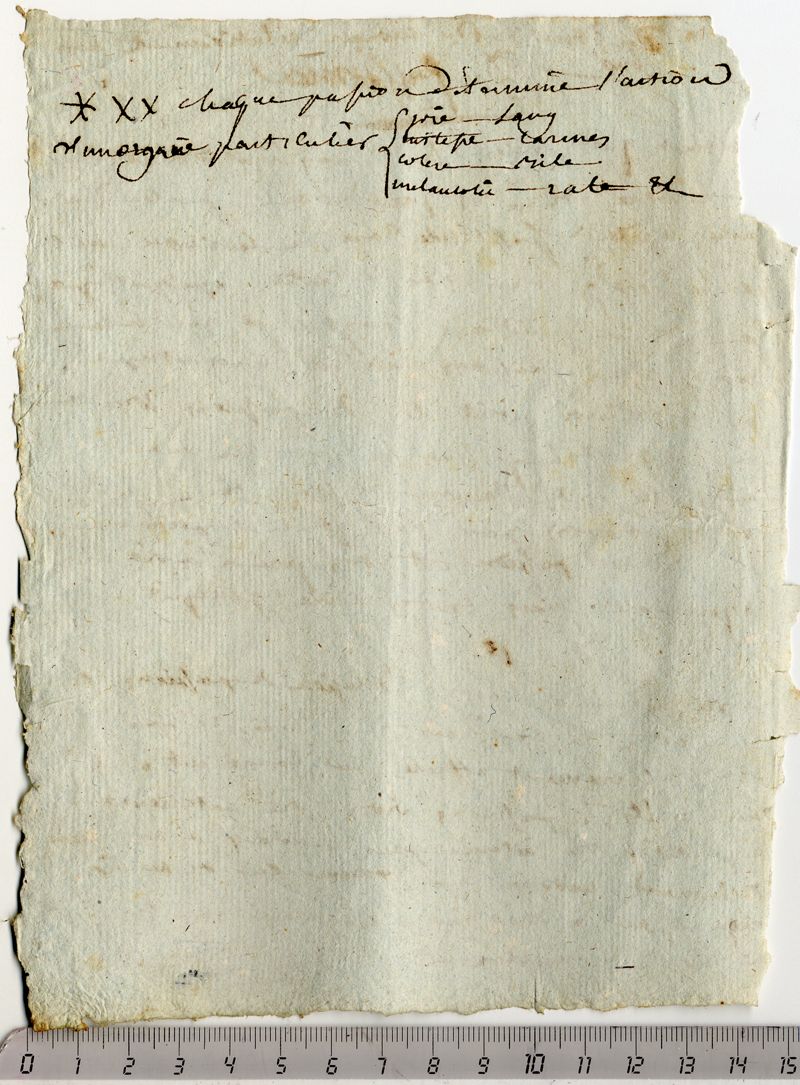 * XX chaque passion détermine l'action
d'un organe particulier { joie — sang
tristesse — larmes
colere — bile
melancolie — rate &
0 1 2 3 4 5 6 7 8 9 10 11 12 13 14 15